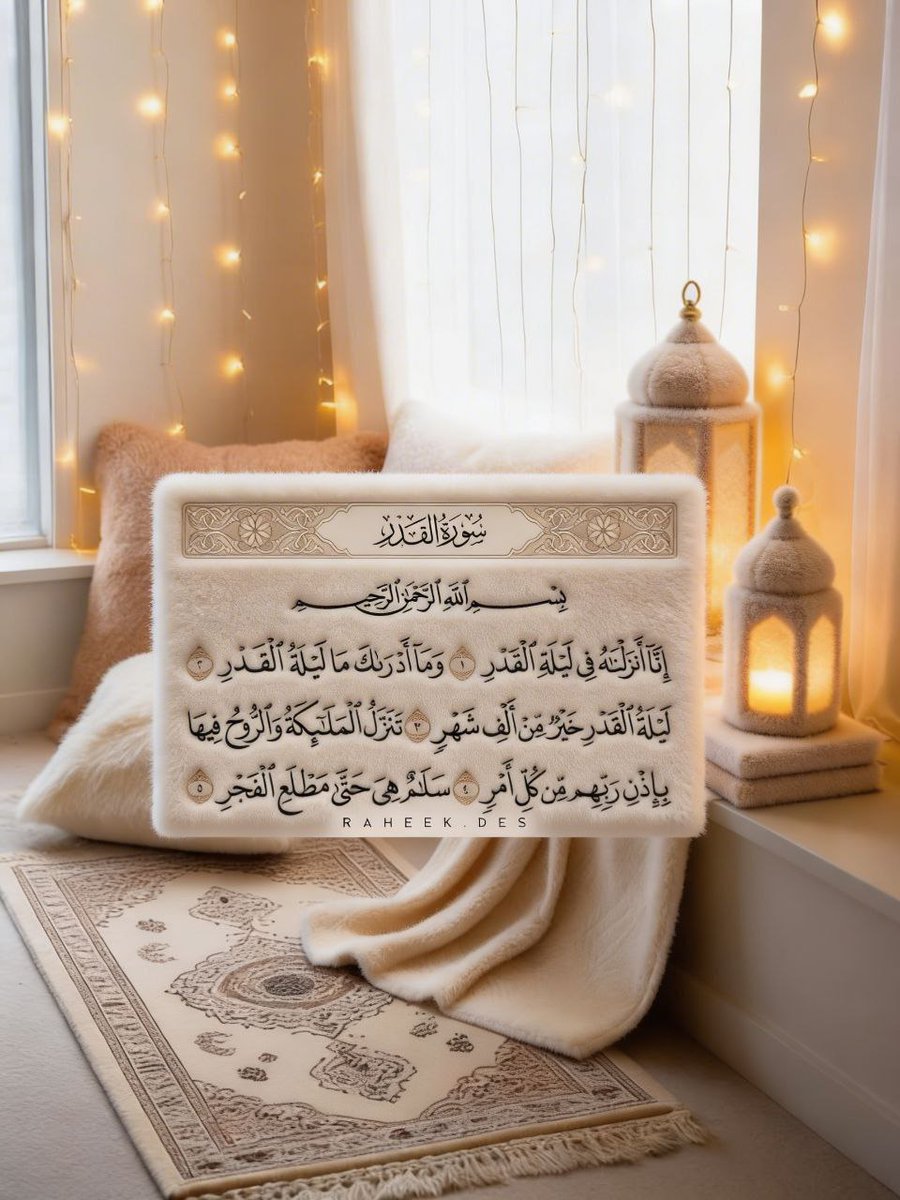 سُورَةُ القَدْرِ
بِسْمِ ٱللَّهِ ٱلرَّحْمَٰنِ ٱلرَّحِيمِ
إِنَّآ أَنزَلْنَٰهُ فِى لَيْلَةِ ٱلْقَدْرِ ١ وَمَآ أَدْرَىٰكَ مَا لَيْلَةُ ٱلْقَدْرِ ٢
لَيْلَةُ ٱلْقَدْرِ خَيْرٌ مِّنْ أَلْفِ شَهْرٍ ٣ تَنَزَّلُ ٱلْمَلَٰٓئِكَةُ وَٱلرُّوحُ فِيهَا
بِإِذْنِ رَبِّهِم مِّن كُلِّ أَمْرٍ ٤ سَلَٰمٌ هِىَ حَتَّىٰ مَطْلَعِ ٱلْفَجْرِ ٥
RAHEEK.DES